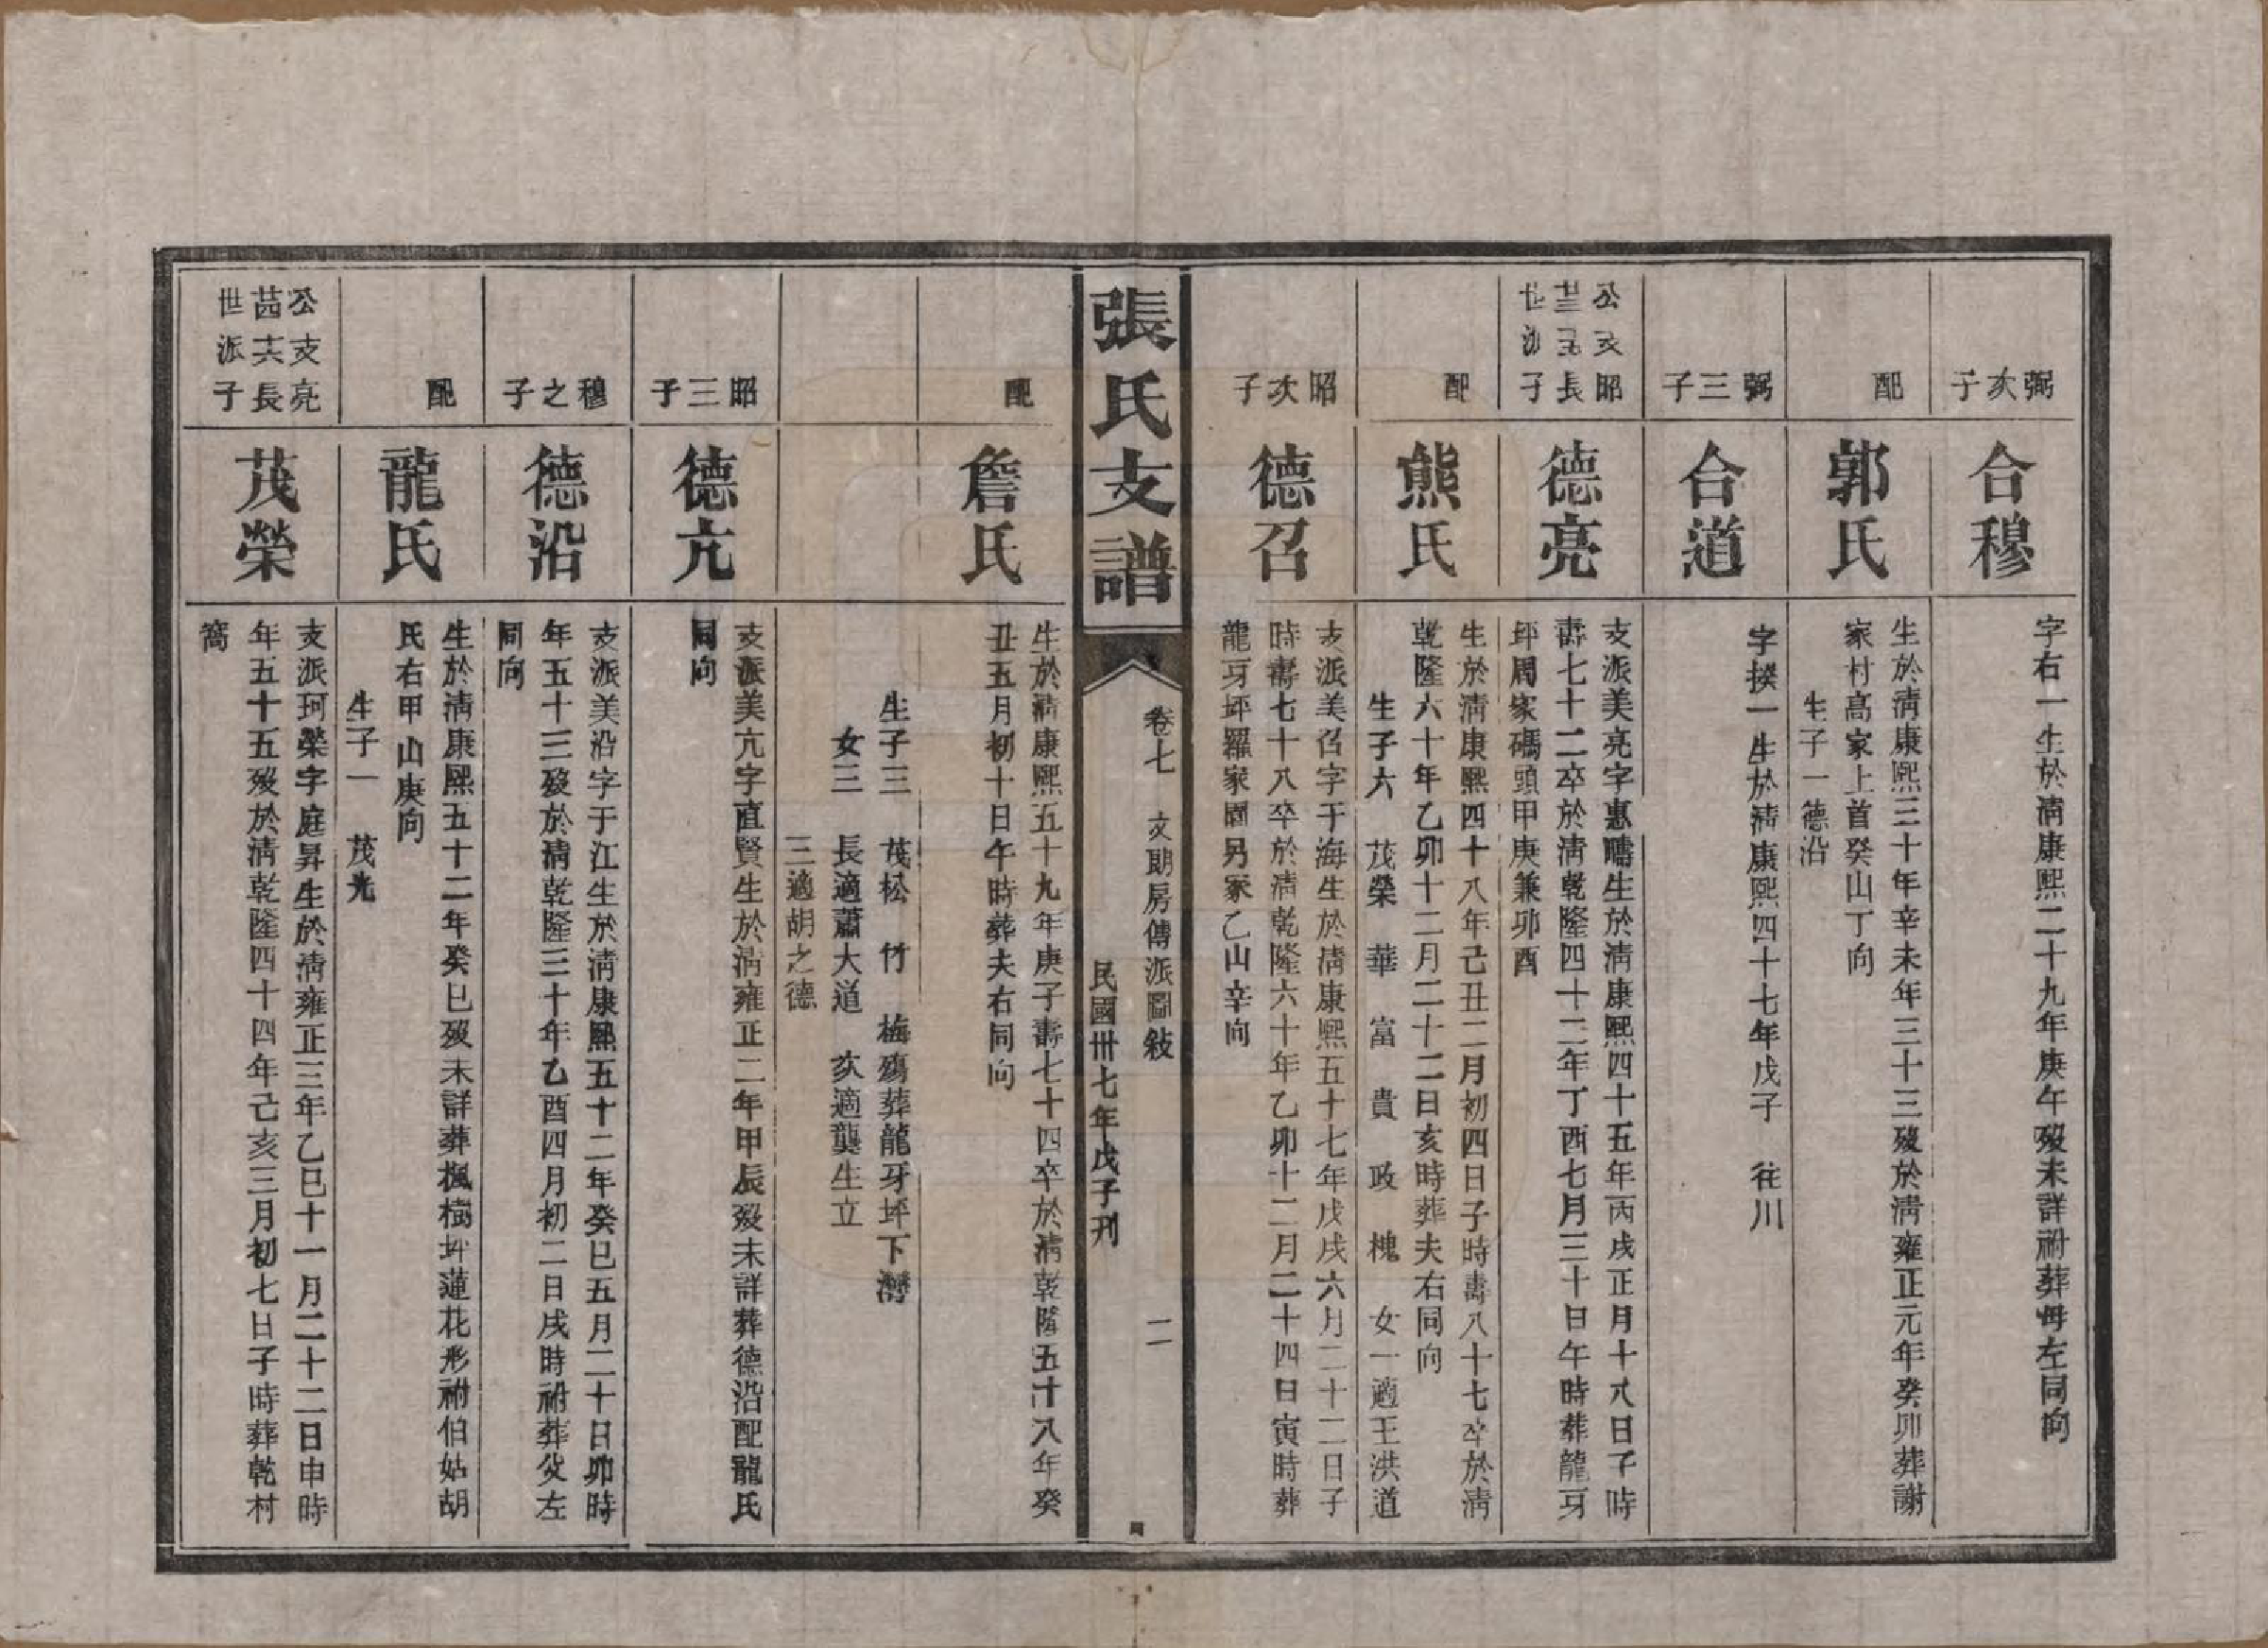 弼次子
合穆
字右一生於清康熙二十九年庚午歿未詳祔葬母左同向
配
郭氏
生於清康熙三十年辛未年三十三歿於清雍正元年癸卯葬謝
家村高家上首癸山丁向
生子一德沿
弼三子
合道
字揆一生於清康熙四十七年戊子　往川
公支昭
世派子
德亮
支派美亮字惠疇生於清康熙四十五年丙戌正月十八日子時
壽七十二卒於清乾隆四十二年丁酉七月三十日午時葬龍牙
坪周家碼頭甲庚兼卯酉
配
熊氏
生於清康熙四十八年己丑二月初四日子時壽八十七卒於清
乾隆六十年乙卯十二月二十二日亥時葬夫右同向
生子六　茂榮　華　富　貴　政　槐　女一適王洪道
昭次子
德召
支派美召字于海生於清康熙五十七年戊戌六月二十二日子
時壽七十八卒於清乾隆六十年乙卯十二月二十四日寅時葬
龍牙坪羅家園另冢乙山辛向
張氏支譜
卷七　文期房傳派圖敍　二
民國卅七年戊子刊
配
詹氏
生於清康熙五十九年庚子壽七十四卒於清乾隆五十八年癸
丑五月初十日午時葬夫右同向
生子三　茂松　竹　梅殤葬龍牙坪下灣
女三　長適蕭大道　次適龔生立
三適胡之德
昭三子
德亢
支派美亢字直賢生於清雍正二年甲辰歿未詳葬德沿配龍氏
同向
穆之子
德沿
支派美沿字于江生於清康熙五十二年癸巳五月二十日卯時
年五十三歿於清乾隆三十年乙酉四月初二日戌時祔葬父左
同向
配
龍氏
生於清康熙五十二年癸巳歿未詳葬楓樹坪蓮花形祔伯姑胡
氏右甲山庚向
生子一　茂光
公支亮
世派子
茂榮
支派珂榮字庭昇生於清雍正三年乙巳十一月二十二日申時
年五十五歿於清乾隆四十四年己亥三月初七日子時葬乾村
窩